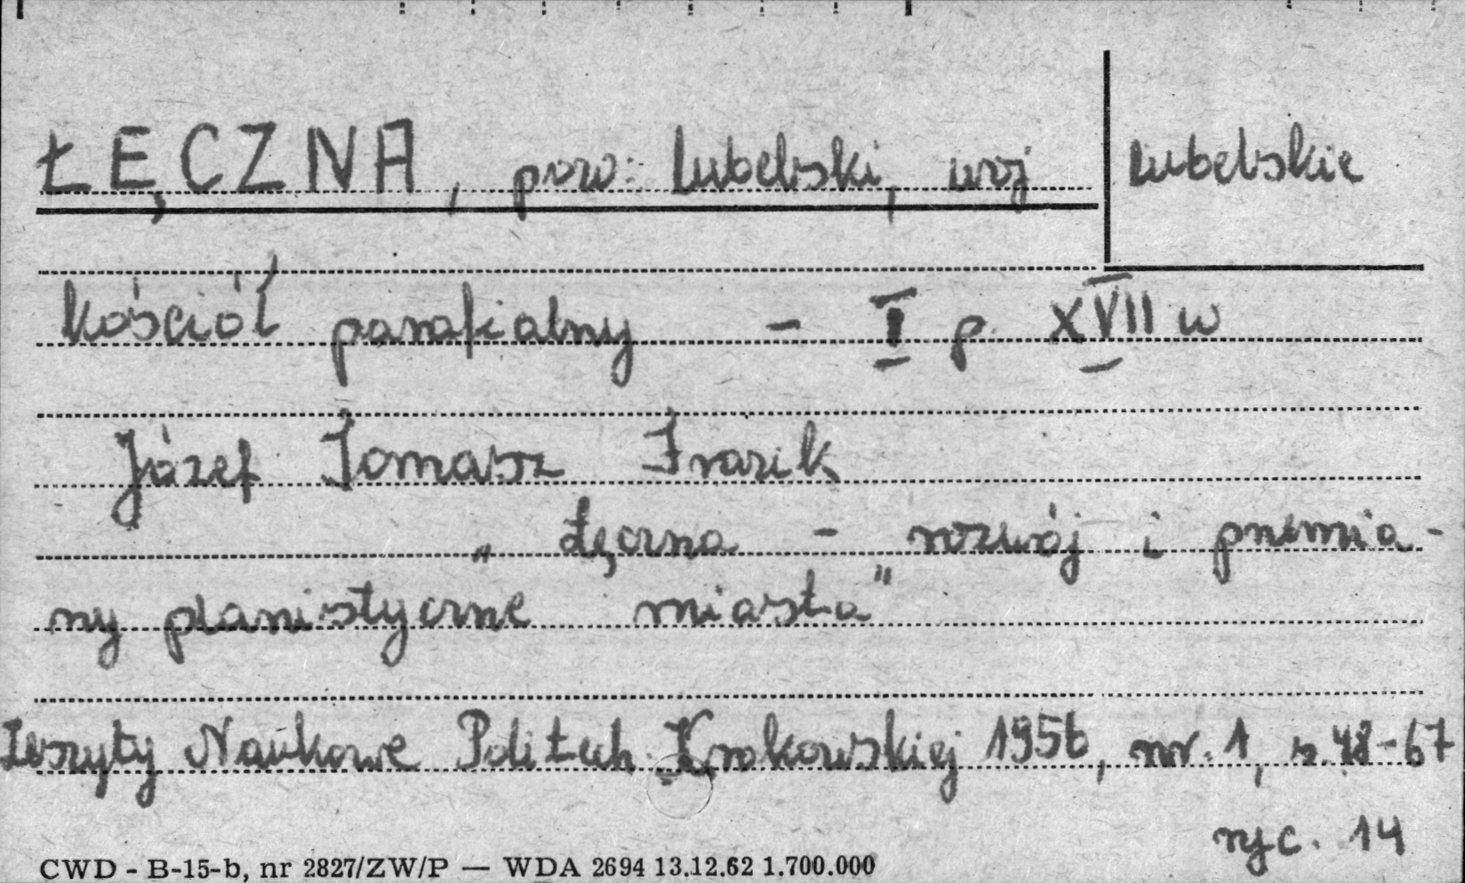 ŁĘCZNA, pow: Lubelski, woj Lubelskie
Kościół parafialny - I p. XVII w
Józef Tomasz Frazik
„Łęczna - rozwój i przemia-
ny planistyczne miasta"
Zeszyty Naukowe Politech. Krakowskiej 1956, nr. 1, s. 48-67
ryc. 14
CWD - B-15-b, nr 2827/ZW/P — WDA 2694 13.12.62 1.700.000